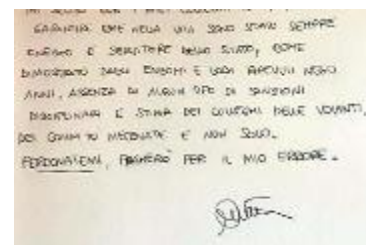 GARANTIRE CHE NELLA VITA SONO STATO SEMPRE
E SERVITORE DELLO STATO, COME
DIMOSTRATO DAGLI ENCOMI E LODI AVUTI NEGLI
ANNI, ASSENZA DI ALCUN TIPO DI SANZIONI
DISCIPLINARI E STIMA DEI COLLEGHI DELLE VOLANTI,
DEL COMM.TO MECENATE E NON SOLO.
PERDONATEMI, PAGHERÒ PER IL MIO ERRORE.